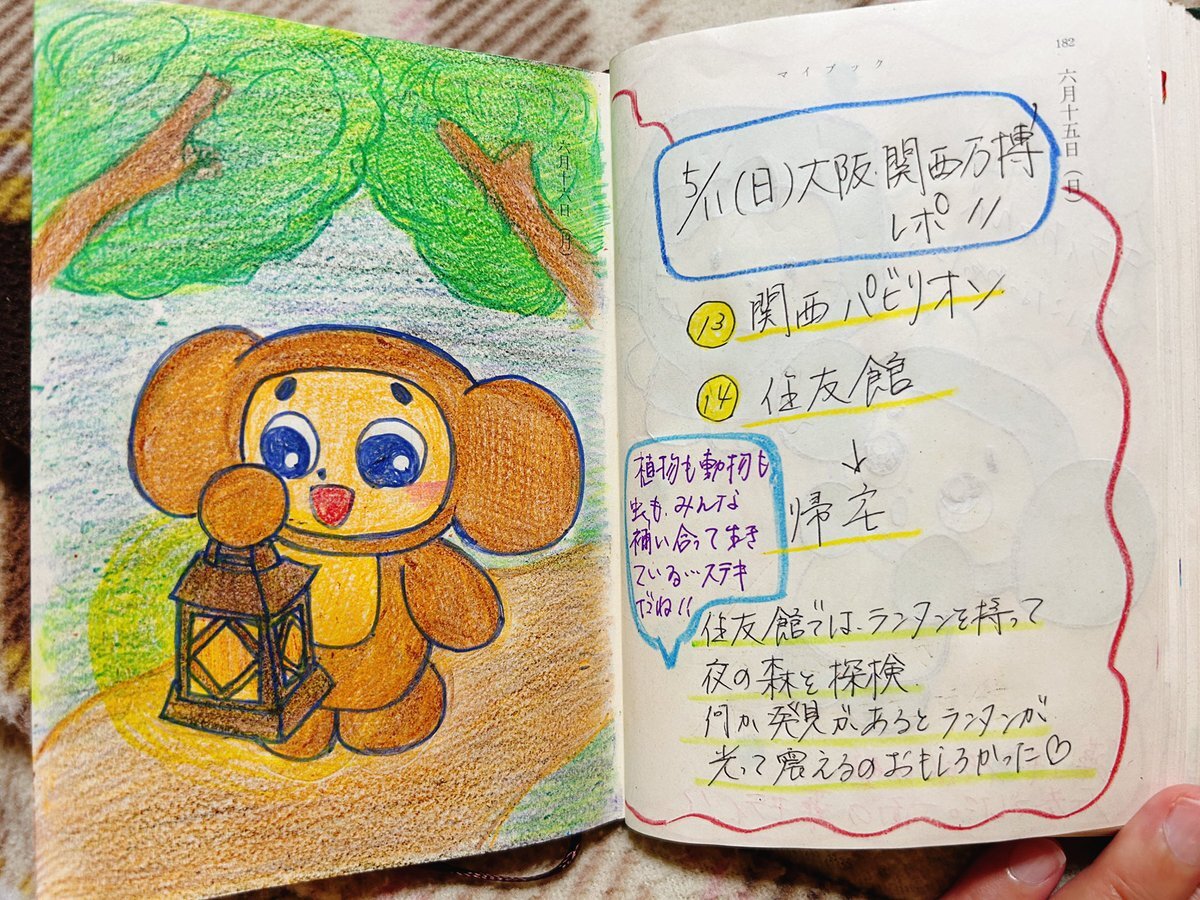 182
六月十六日(月)
マイブック
182
六月十五日(日)
5/11(日)大阪・関西万博
レポ!!
⑬ 関西パビリオン
⑭ 住友館
↓
帰宅
植物も動物も
虫も、みんな
補い合って生き
ている…ステキ
だね!!
住友館では、ランタンを持って
夜の森を探検.
何か発見があるとランタンが
光って震えるのおもしろかった♡